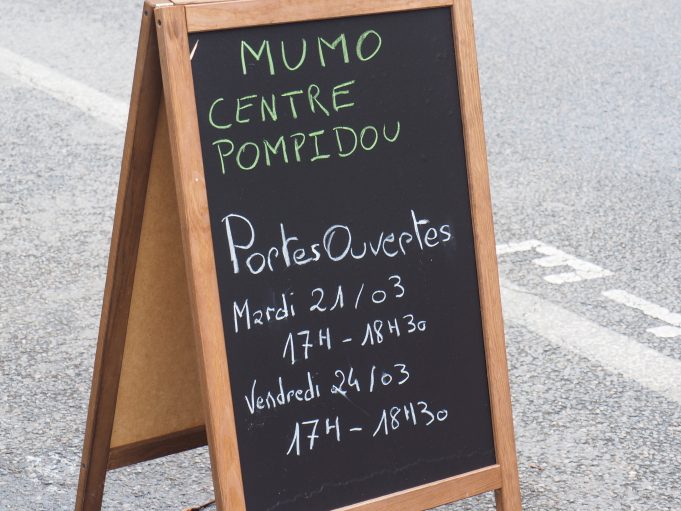 MUMO
CENTRE
POMPIDOU
Portes Ouvertes
Mardi 21/03
17H - 18H30
Vendredi 24/03
17H - 18H30